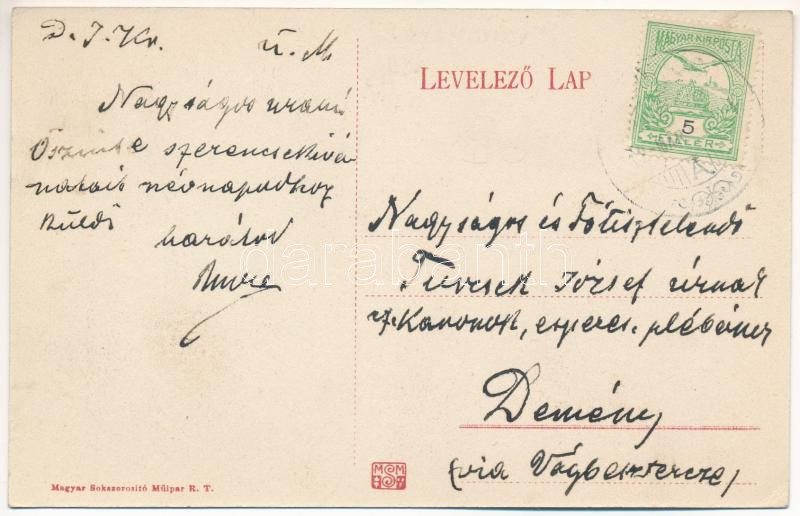 D. J. Kr. ú. M
Nagyságos uram
Őszinte szerencsekivá
natait névnapodhoz
küldi
barátod
LEVELEZŐ LAP
MAGYAR KIR. POSTA
5
FILLÉR
Nagyságos és Főtisztelendő
József úrnak
Kanonok, esperes, plébános
Demény
(via Vágbesztercze)
Magyar Sokszorosító Műipar R. T.
darabanth